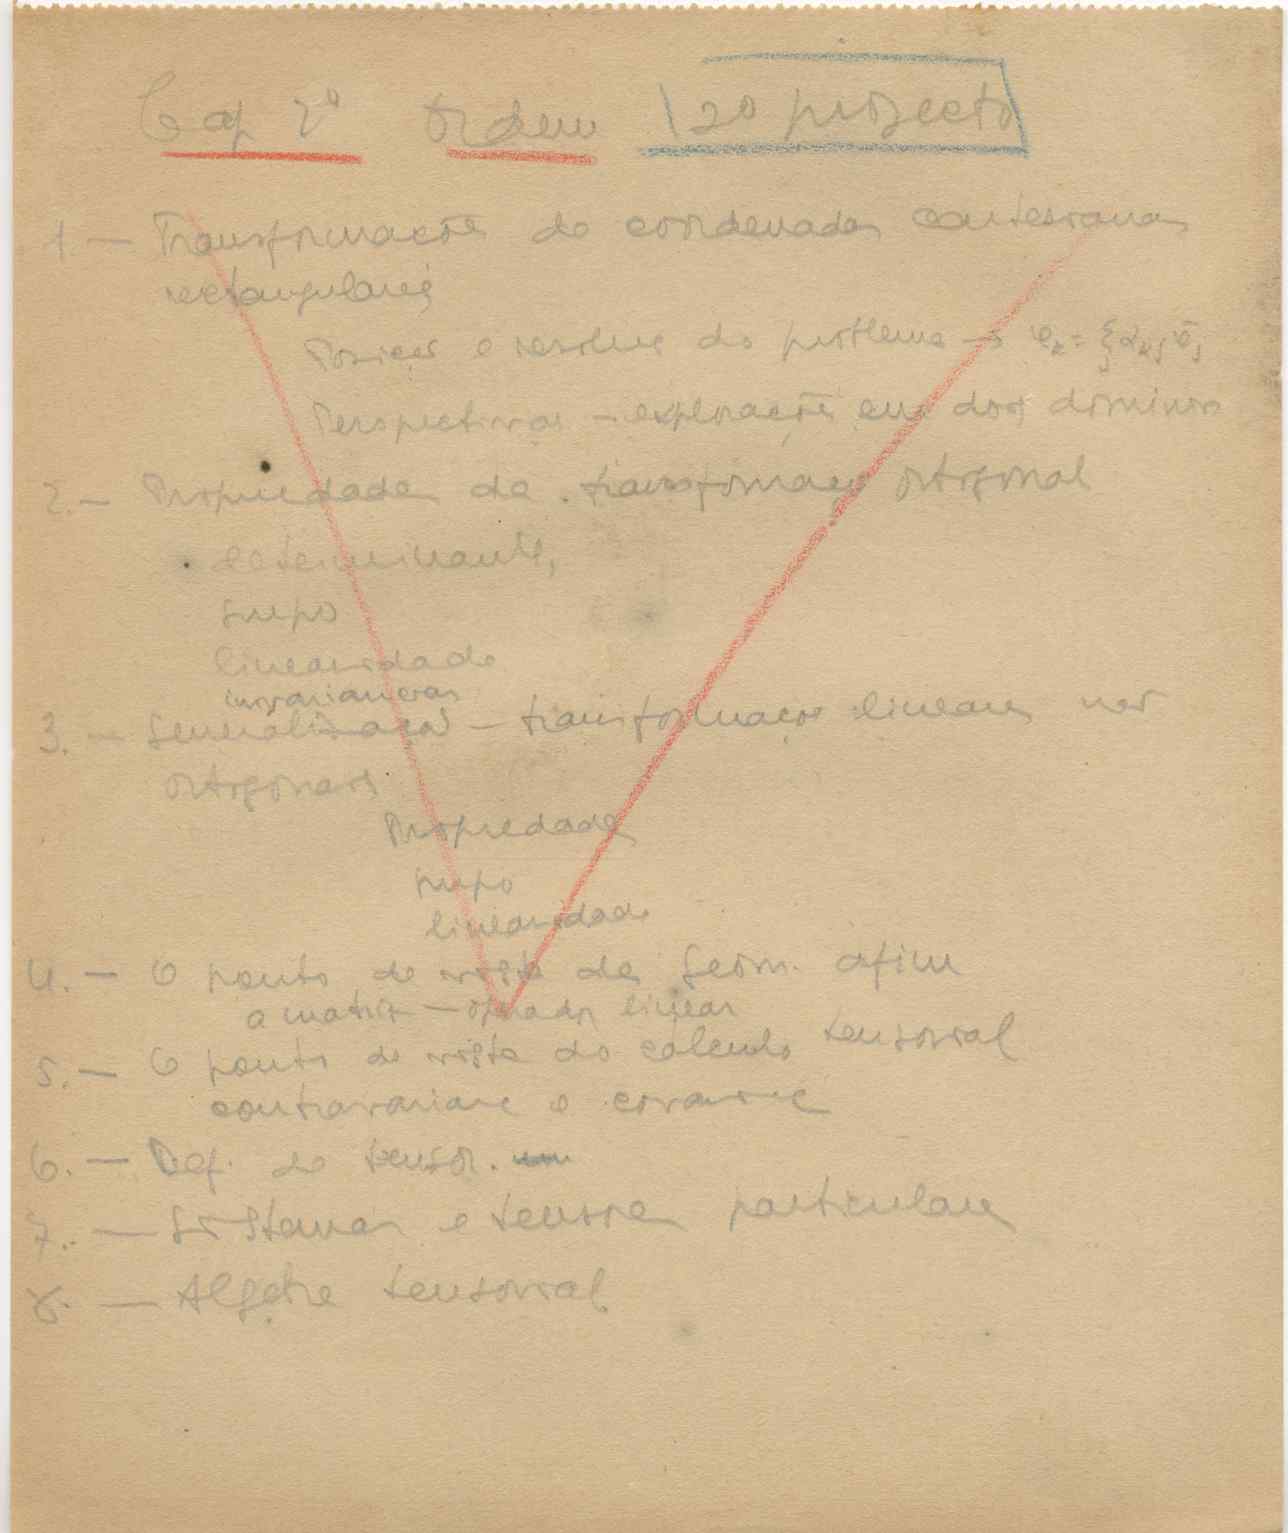 Cap 2º Ordem 2º projecto
1. — Transformações de coordenadas cartesianas
rectangulares
Posição e resoluç do problema →
Perspectivas — explorações em dois domínios
2. — Propriedades da transformação ortogonal
determinante,
grupo
linearidade
invariancias
3. — Generalização — transformações lineares não
ortogonais
Propriedades
grupo
linearidade
4. — O ponto de vista da Geom. afim
a matriz — operador linear
5. — O ponto de vista do cálculo tensorial
contravarianc e covarianc
6. — Def. de tensor.
7. — Sistemas e tensores particulares
8. — Algebra tensorial